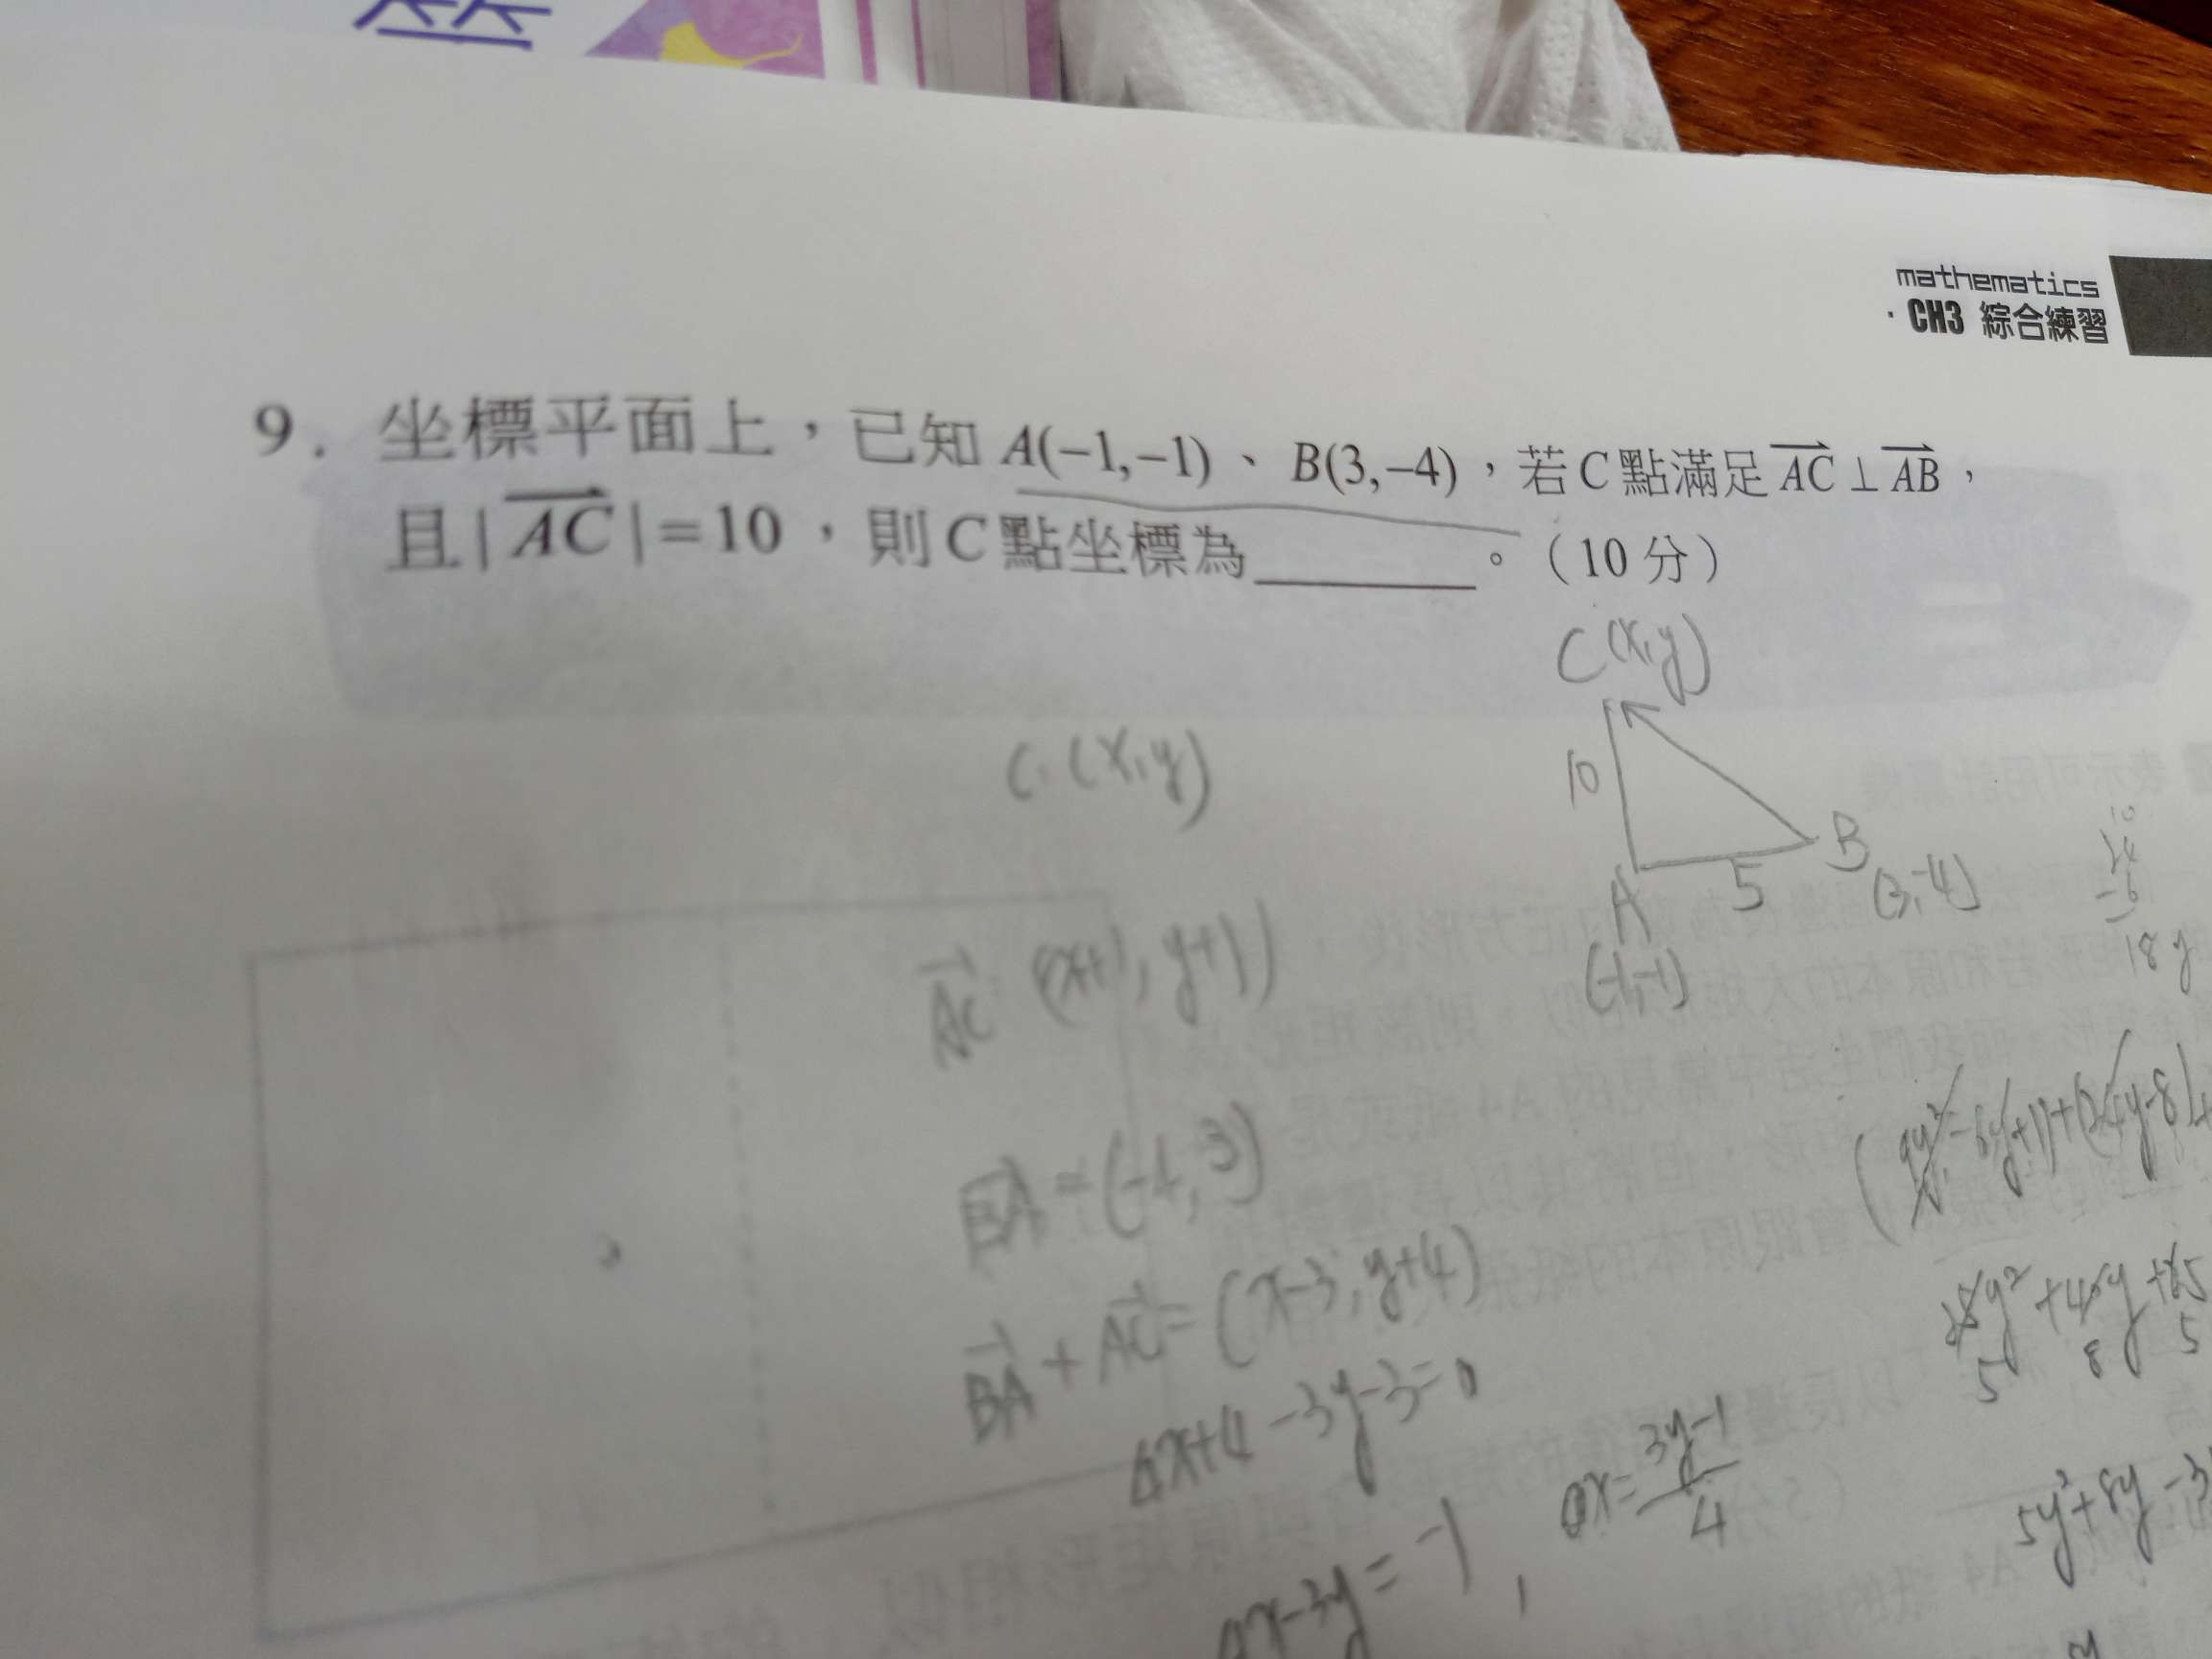 mathematics
· CH3 綜合練習
9. 坐標平面上，已知 A(−1,−1)、B(3,−4)，若 C 點滿足 AC ⊥ AB，
且 | AC |=10，則 C 點坐標為______。（10 分）
C(x,y)
C(x,y)
10
5
B
(3,-4)
A
(-1,-1)
18y
AC (x+1, y+1)
BA = (-4, 3)
BA + AC = (x-3, y+4)
4x+4-3y-3=0
x = 3y-1
4
x-3y = -1,
(9y²-6y+1)+(24y-8)+
y²+40y+
5 8 5
5y²+8y-3